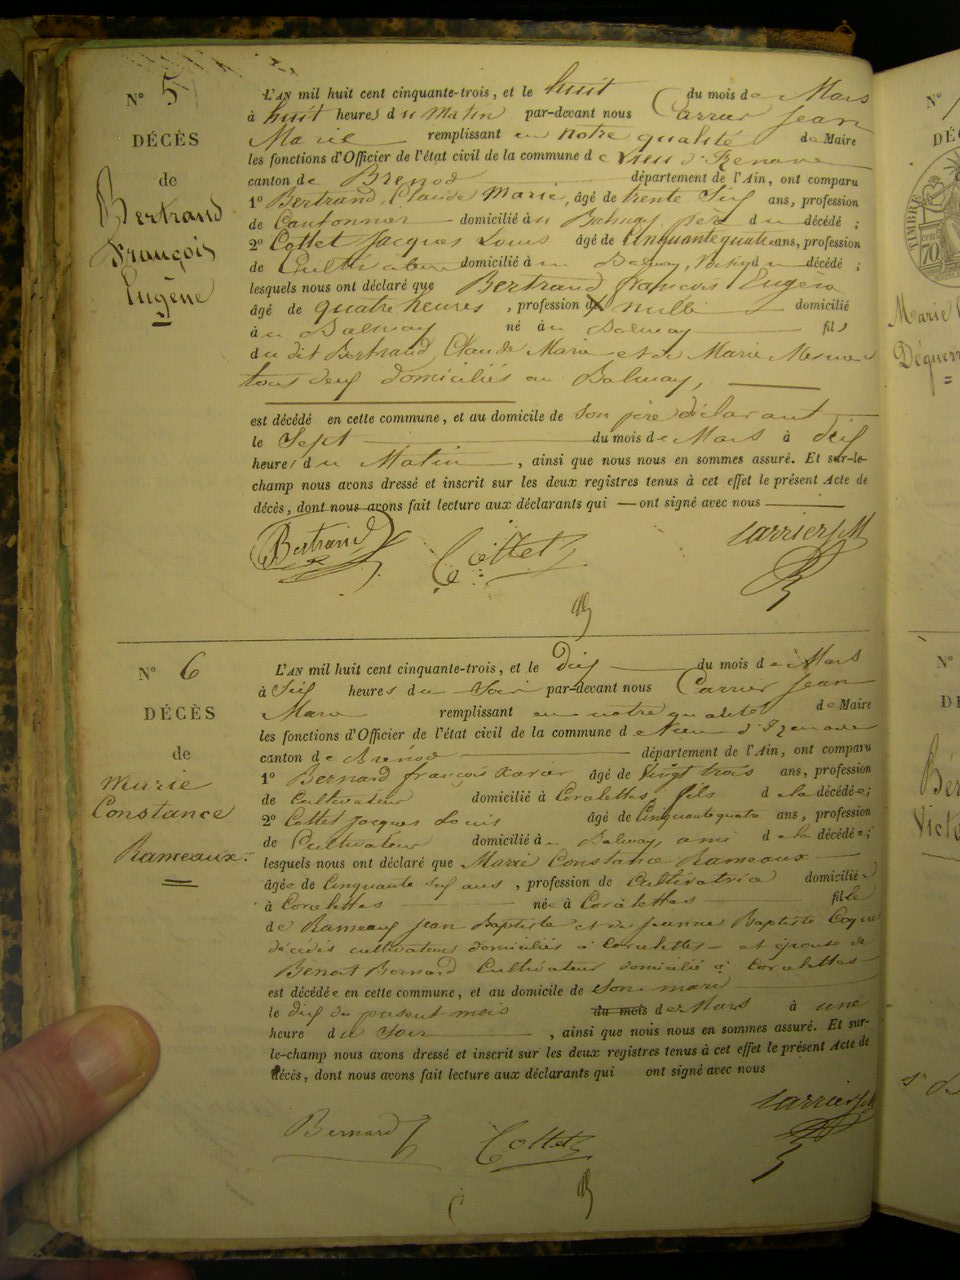 N° 5
DÉCÈS
de
Bertrand
François
Eugène
L'AN mil huit cent cinquante-trois, et le huit du mois de Mars
à huit heures du Matin par-devant nous Carrier Jean
Marie remplissant en notre qualité de Maire
les fonctions d'Officier de l'état civil de la commune de Vieu d'Izenave
canton de Brénod département de l'Ain, ont comparu
1° Bertrand, Claude Marie, âgé de trente Six ans, profession
de Cantonnier domicilié au Balmay père du décédé ;
2° Cottet Jacques Louis âgé de Cinquante quatre ans, profession
de Cultivateur domicilié à au Balmay, du décédé ;
lesquels nous ont déclaré que Bertrand françois Eugène
âgé de quatre heures , profession de nulle domicilié
à au Balmay né à au Balmay fils
du dit Bertrand, Claude Marie et de Marie
tous deux domiciliés au Balmay,
est décédé en cette commune, et au domicile de son père déclarant
le Sept du mois de Mars à dix
heures du Matin , ainsi que nous nous en sommes assuré. Et sur-le-
champ nous avons dressé et inscrit sur les deux registres tenus à cet effet le présent Acte de
décès, dont nous avons fait lecture aux déclarants qui — ont signé avec nous
Bertrand Cottet Carrier JM
N° 6
DÉCÈS
de
Marie
Constance
Rameaux
L'AN mil huit cent cinquante-trois, et le Dix du mois de Mars
à Six heures du Soir par-devant nous Carrier Jean
Marie remplissant en notre qualité de Maire
les fonctions d'Officier de l'état civil de la commune de Vieu d'Izenave
canton de Brénod département de l'Ain, ont comparu
1° Bernard françois Xavier âgé de Vingt trois ans, profession
de Cultivateur domicilié à Corcelettes, fils de la décédée;
2° Cottet Jacques Louis âgé de Cinquante quatre ans, profession
de Cultivateur domicilié à au Balmay, ami de la décédée;
lesquels nous ont déclaré que Marie Constance Rameaux
âgée de Cinquante six ans , profession de Cultivatrice domicilié
à Corcelettes née à Corcelettes fille
de Rameaux Jean Baptiste et de Jeanne Baptiste
décédés cultivateurs domiciliés à Corcelettes et épouse de
Benoit Bernard Cultivateur domicilié à Corcelettes
est décédée en cette commune, et au domicile de son mari
le dix du présent mois du mois de Mars à une
heure du Soir , ainsi que nous nous en sommes assuré. Et sur-
le-champ nous avons dressé et inscrit sur les deux registres tenus à cet effet le présent Acte de
décès, dont nous avons fait lecture aux déclarants qui ont signé avec nous
Bernard Cottet Carrier JM
N°
TIMBRE
70
Marie
N°
Vict